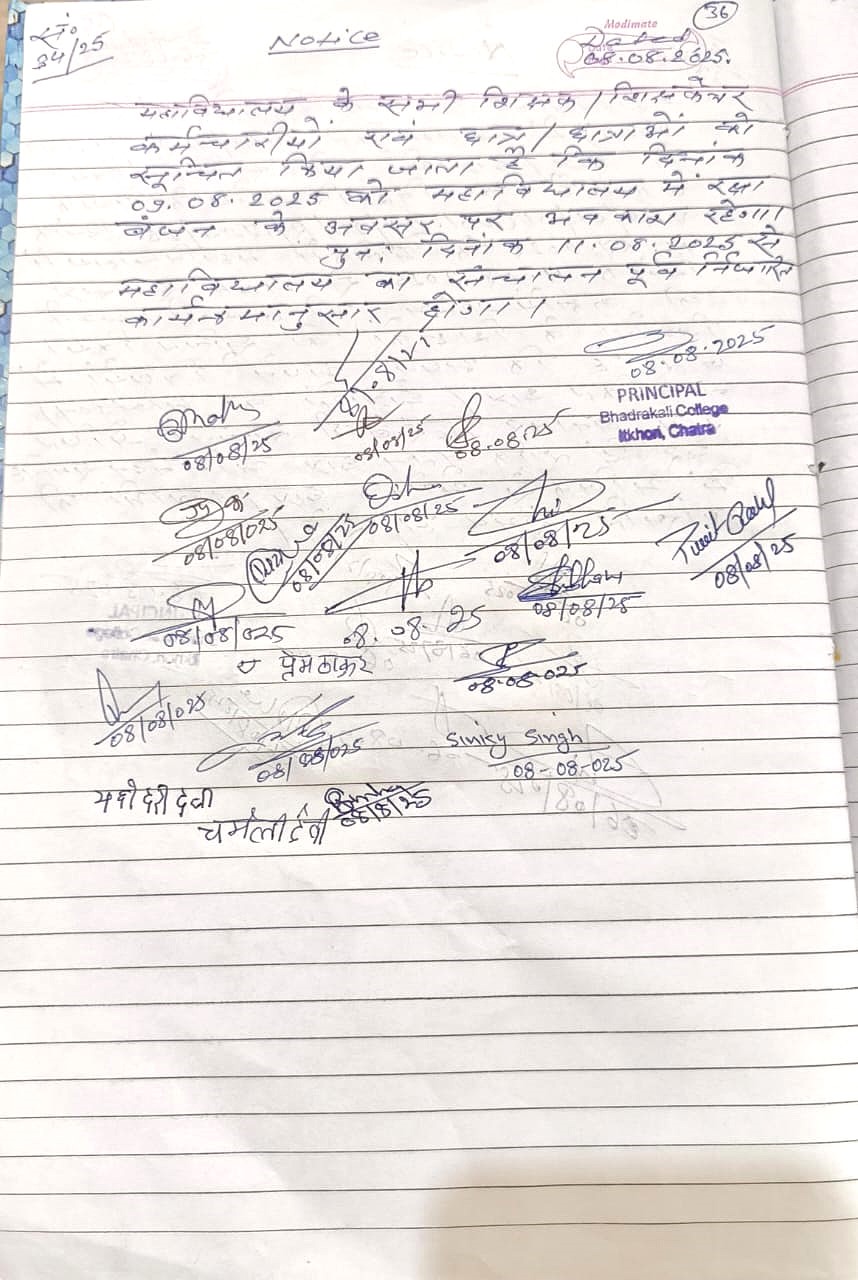 सं०
34/25
Notice
36
Modimate
Dated
08.08.2025.
महाविद्यालय के सभी शिक्षक/शिक्षकेत्तर
कर्मचारीयों एवं छात्र/छात्राओं को
सूचित किया जाता है कि दिनांक
09.08.2025 को महाविद्यालय में रक्षा
बंधन के अवसर पर अवकाश रहेगा।
पुनः दिनांक 11.08.2025 से
महाविद्यालय का संचालन पूर्व निर्धारित
कार्यक्रमानुसार होगा।
08.08.2025
PRINCIPAL
Bhadrakali College
Itkhori, Chatra
08/08/25
08/08/25
08.08.25
08/08/025
08/08/25
08/08/25
08/08/25
08/08/25
08/08/025
08.08.25
08/08/25
प्रेम ठाकुर
08.08.025
08/08/025
08/08/025
Sinky Singh
08-08-025
08/8/25
चमेली देवी